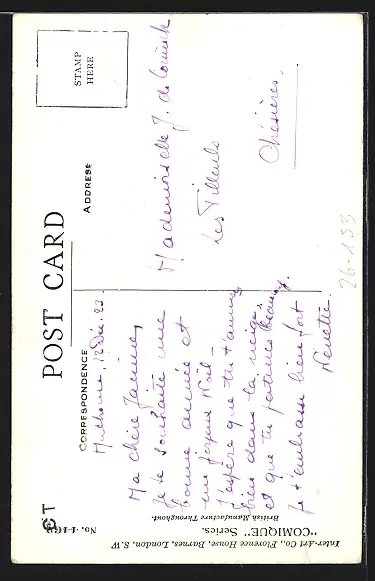 POST CARD
CORRESPONDENCE
ADDRESS
STAMP
HERE
12 Déc. 23.
Ma chère Janine,
Je te souhaite une
bonne année et
un joyeux Noël -
J'espère que tu t'amuses
bien dans la neige,
et que tu patines beaucoup.
Je t'embrasse bien fort
Nenette.
Mademoiselle J. de
Les Tilleuls
Chésières.
26-153
No.
Inter-Art Co., Florence House, Barnes, London, S.W
"COMIQUE" Series.
British Manufacture Throughout.